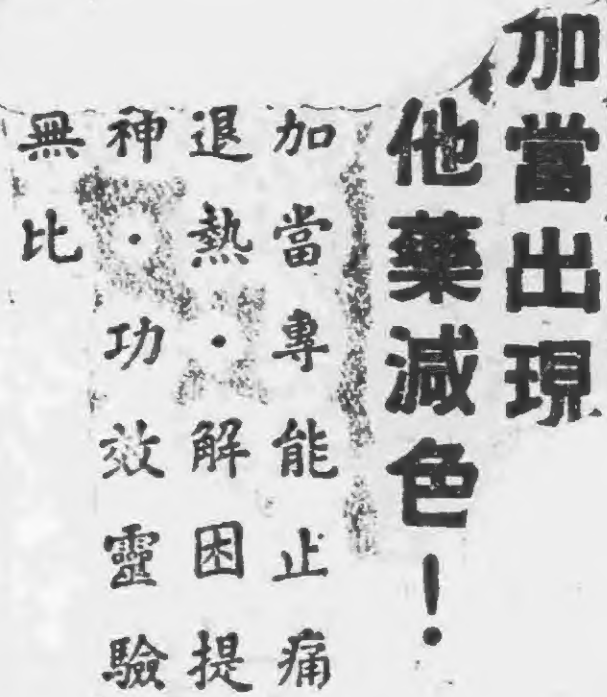 加當出現
他藥減色！
加當專能止痛
退熱·解困提
神·功效靈驗
無比